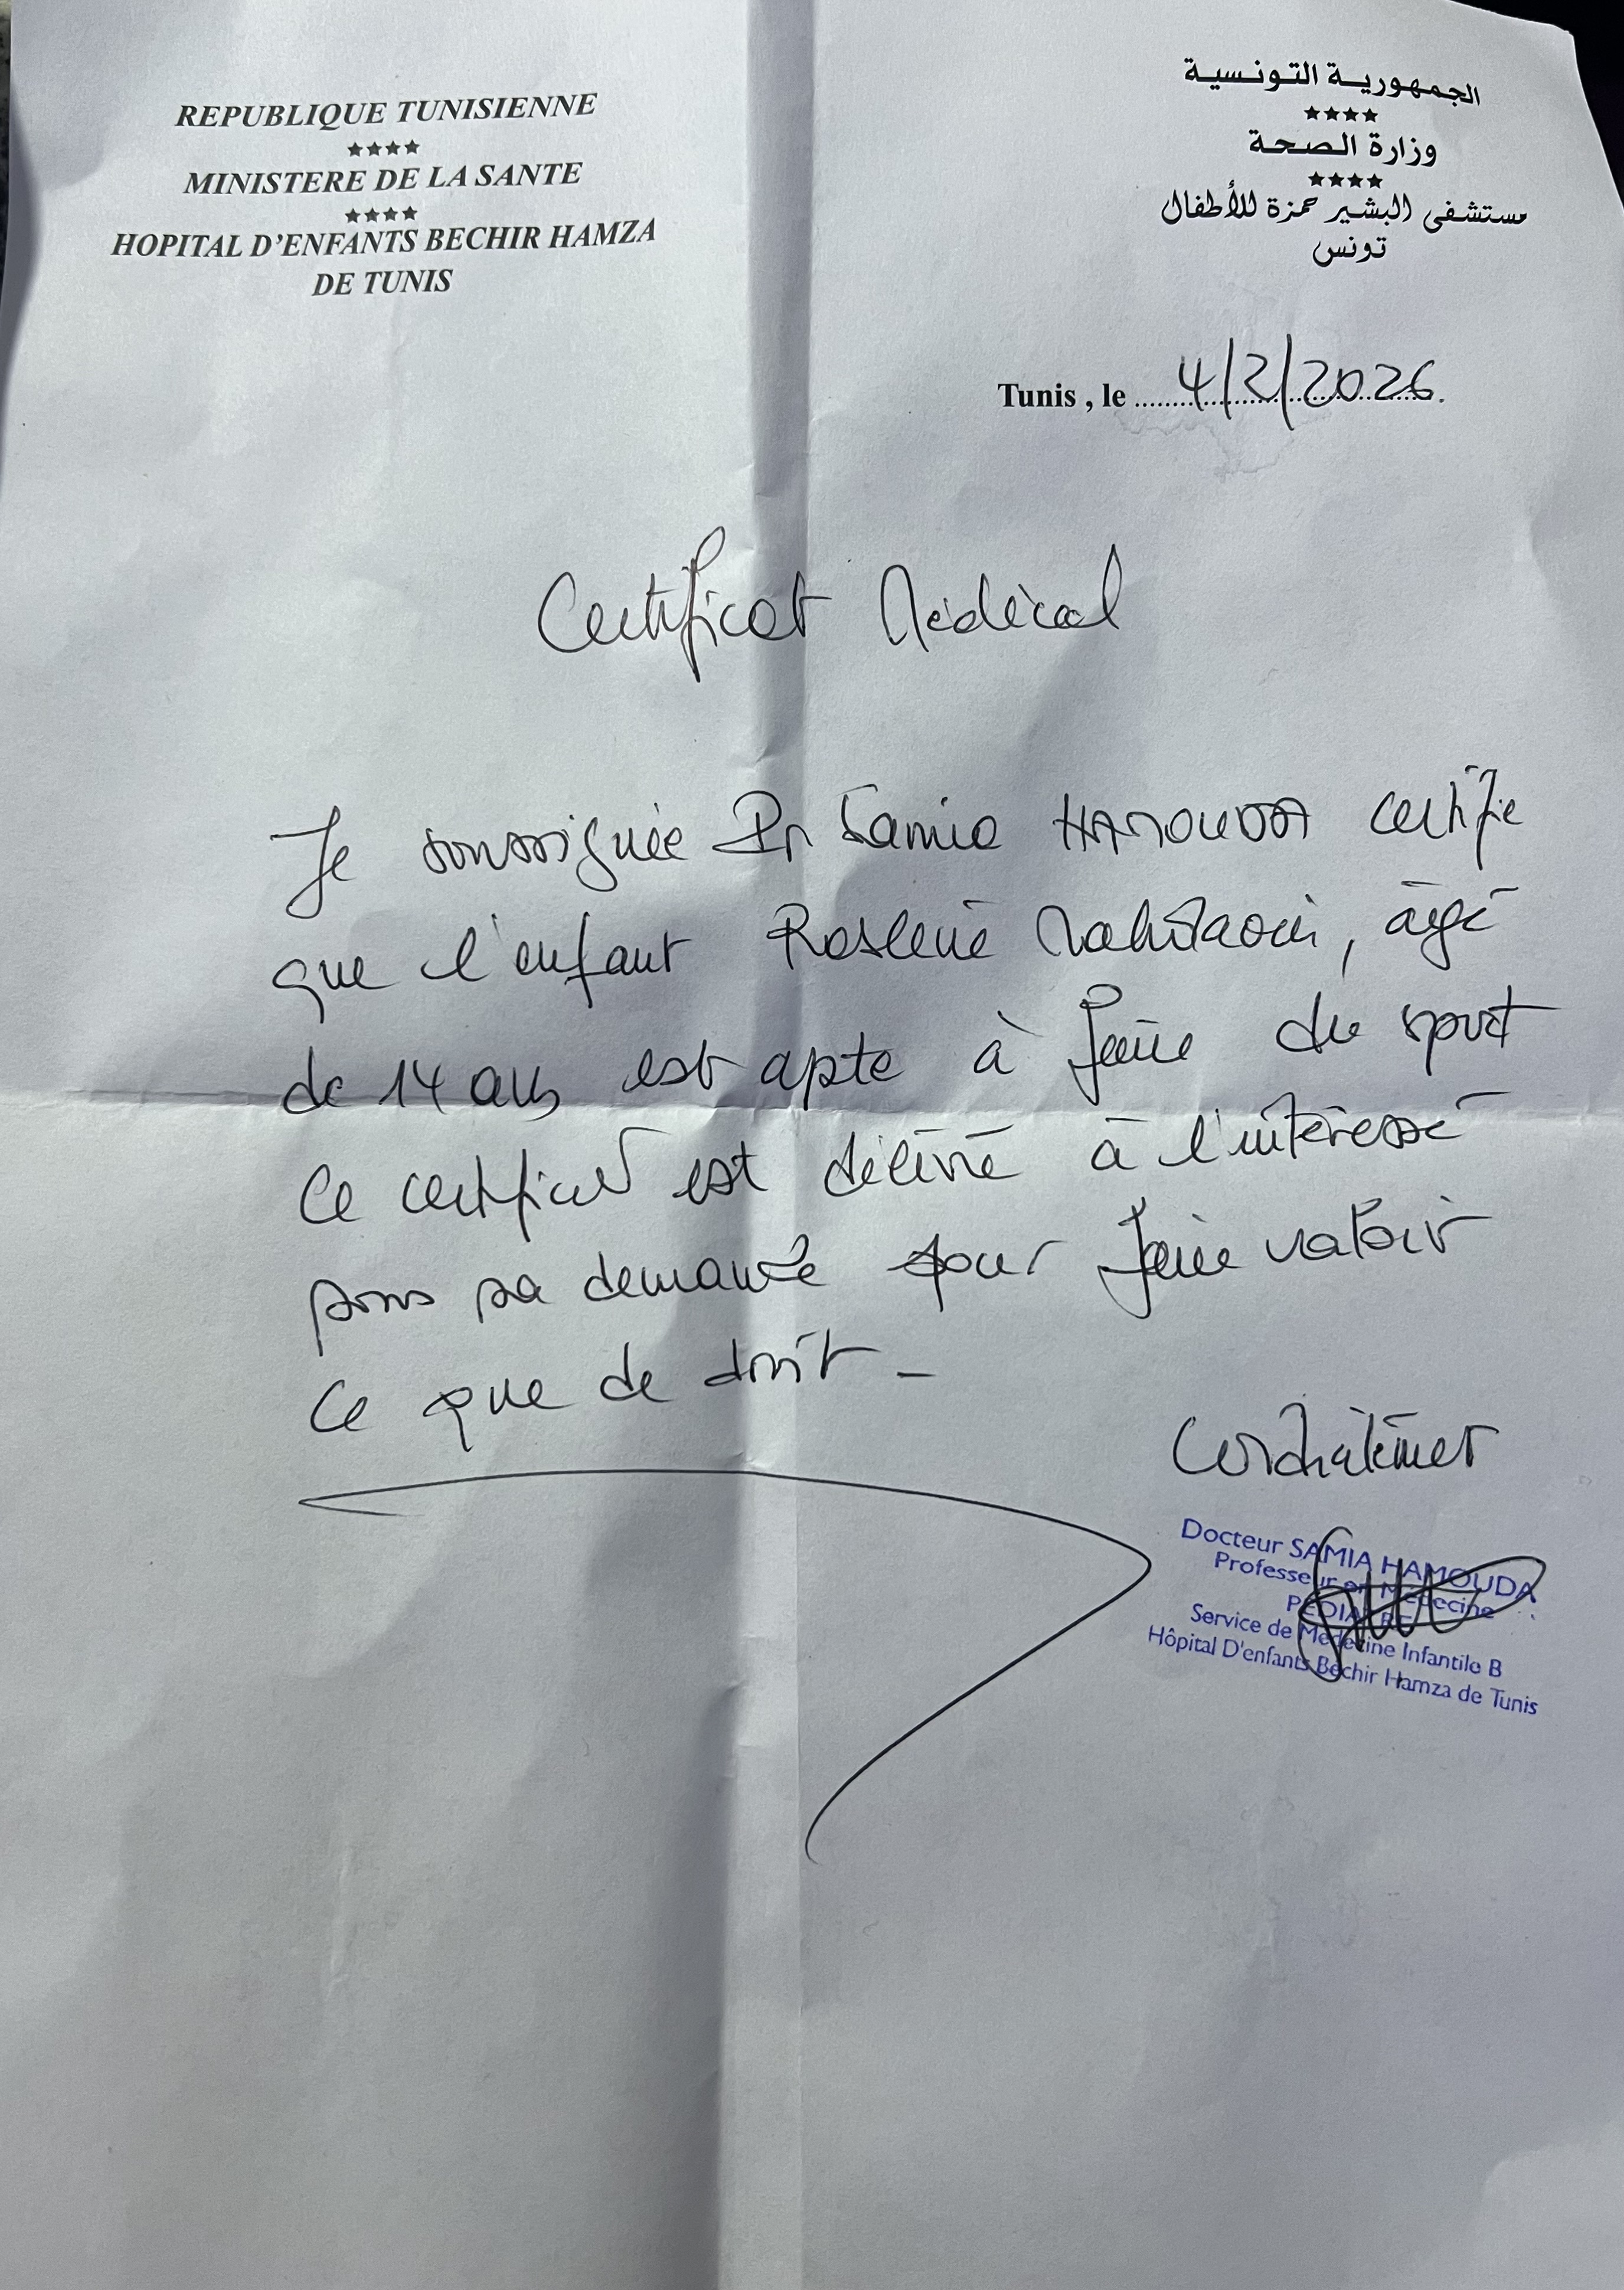 REPUBLIQUE TUNISIENNE
★★★★
MINISTERE DE LA SANTE
★★★★
HOPITAL D'ENFANTS BECHIR HAMZA
DE TUNIS
الجمهورية التونسية
★★★★
وزارة الصحة
★★★★
مستشفى البشير حمزة للأطفال
تونس
Tunis , le 4/2/2026
Certificat Médical
Je soussignée Pr Samia HAMOUDA certifie
que l'enfant Roslene, âgé
de 14 ans est apte à faire du sport
Ce certificat est délivré à l'intéressé
sous sa demande pour faire valoir
ce que de droit -
Cordialement
Docteur SAMIA HAMOUDA
Professeur en Médecine
PEDIATRE
Service de Médecine Infantile B
Hôpital D'enfants Béchir Hamza de Tunis